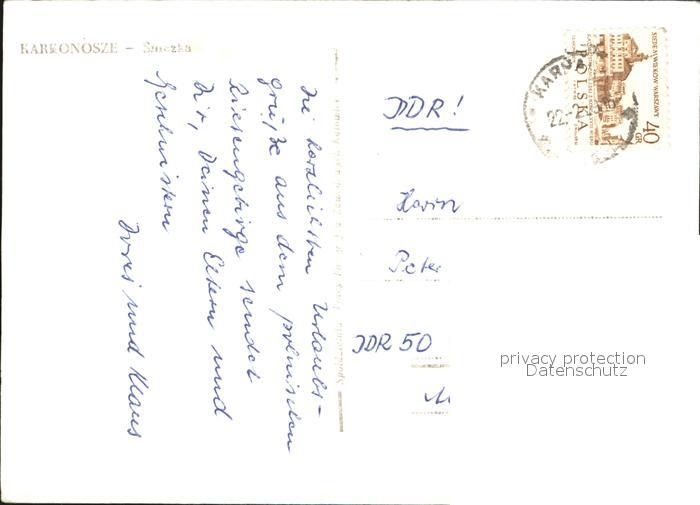 KARKONOSZE – Śnieżka
Die herzlichsten Urlaubs-
grüße aus dem polnischen
Riesengebirge sendet
Dir, Deinen Eltern und
Geschwistern
und Klaus
DDR!
Herrn
Peter
DDR 50
SIEDEM WIEKÓW WARSZAWY
POLSKA
40 GR
KARPA
22-2
privacy protection
Datenschutz